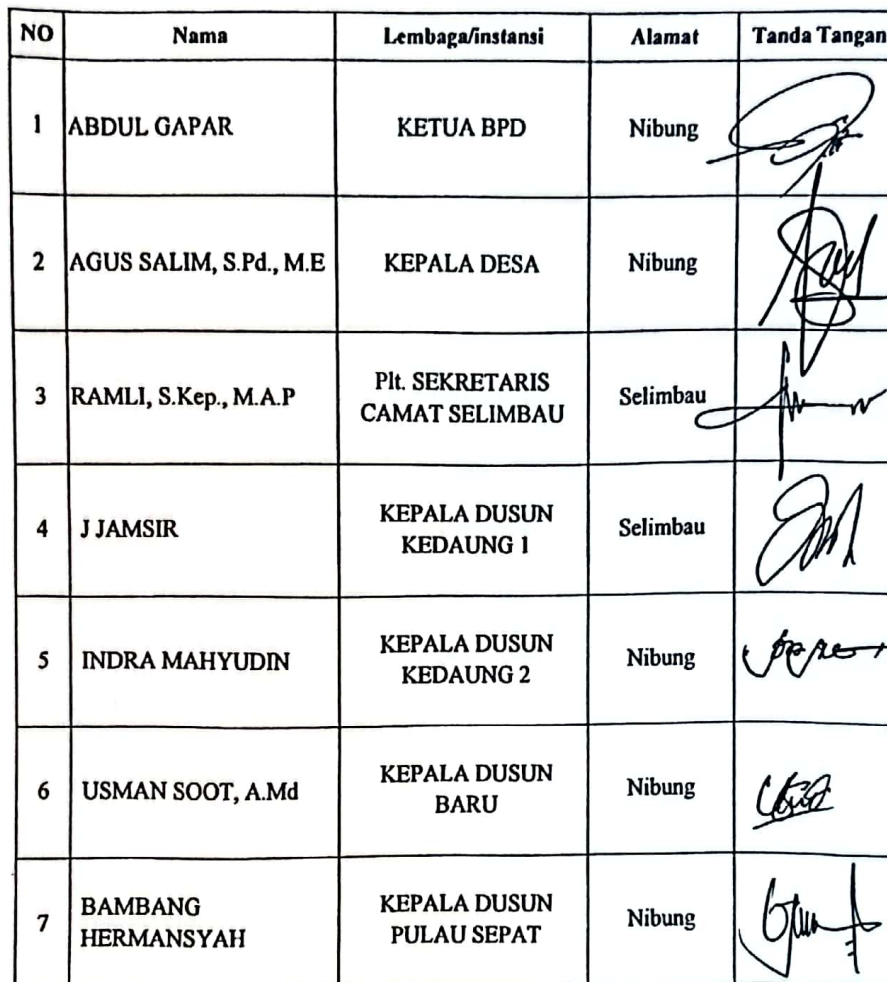 NO Nama Lembaga/instansi Alamat Tanda Tangan
1 ABDUL GAPAR KETUA BPD Nibung
2 AGUS SALIM, S.Pd., M.E KEPALA DESA Nibung
3 RAMLI, S.Kep., M.A.P Plt. SEKRETARIS CAMAT SELIMBAU Selimbau
4 J JAMSIR KEPALA DUSUN KEDAUNG 1 Selimbau
5 INDRA MAHYUDIN KEPALA DUSUN KEDAUNG 2 Nibung
6 USMAN SOOT, A.Md KEPALA DUSUN BARU Nibung
7 BAMBANG HERMANSYAH KEPALA DUSUN PULAU SEPAT Nibung